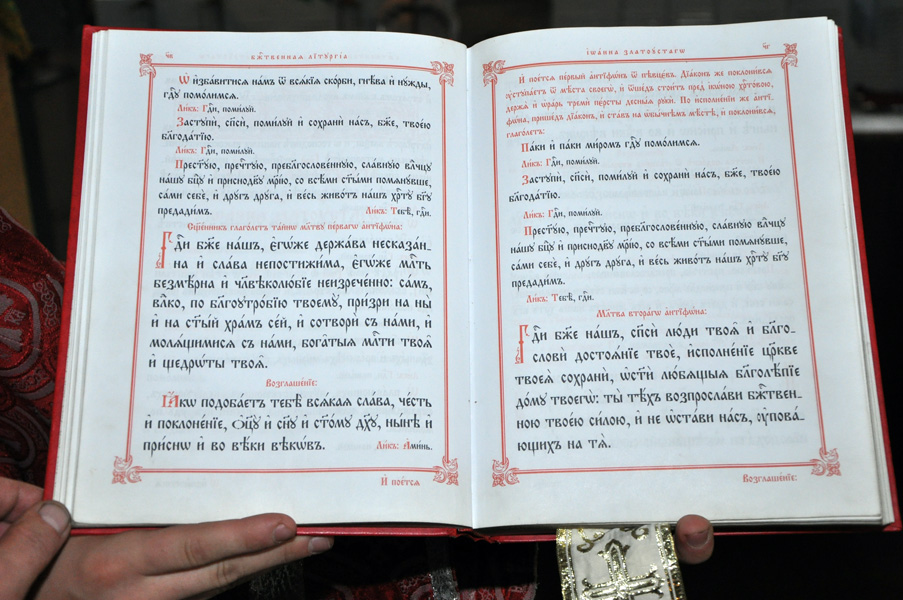 бж҃твеннаѧ лїтꙋргі́а
Ѡ҆ и҆зба́витисѧ на́мъ ѿ всѧ́кїѧ ско́рби, гнѣ́ва и҆ нꙋ́жды,
гдⷭ҇ꙋ помо́лимсѧ.
Ли́къ: Гдⷭ҇и, поми́лꙋй.
Застꙋпѝ, сп҃сѝ, поми́лꙋй и҆ сохранѝ на́съ, бж҃е, твое́ю
бл҃года́тїю.
Ли́къ: Гдⷭ҇и, поми́лꙋй.
Прест҃ꙋ́ю, пречⷭ҇тꙋю, пребл҃гослове́ннꙋю, сла́внꙋю влⷣчцꙋ
на́шꙋ бцⷣꙋ и҆ приснодв҃ꙋ мр҃і́ю, со всѣ́ми ст҃ы́ми помѧнꙋ́вше,
са́ми себѐ, и҆ дрꙋ́гъ дрꙋ́га, и҆ ве́сь живо́тъ на́шъ хрⷭ҇тꙋ̀ бг҃ꙋ
предади́мъ. Ли́къ: Тебѣ̀, гдⷭ҇и.
Сщ҃е́нникъ глаго́летъ та́йнѡ мл҃твꙋ пе́рвагѡ а҆нтїфѡ́на:
Гдⷭ҇и бж҃е на́шъ, є҆гѡ́же держа́ва несказа́н-
на и҆ сла́ва непостижи́ма, є҆гѡ́же млⷭ҇ть
безмѣ́рна и҆ чл҃вѣколю́бїе неизрече́нно: са́мъ,
влⷣко, по бл҃гоꙋтро́бїю твоемꙋ̀, при́зри на ны̀
и҆ на ст҃ы́й хра́мъ се́й, и҆ сотворѝ съ на́ми, и҆
молѧ́щимисѧ съ на́ми, бога̑тыѧ млⷭ҇ти твоѧ̑
и҆ щедрѡ́ты твоѧ̑.
Возглаше́нїе:
Ꙗ҆́кѡ подоба́етъ тебѣ̀ всѧ́каѧ сла́ва, че́сть
и҆ поклоне́нїе, ѻ҆ц҃ꙋ̀ и҆ сн҃ꙋ и҆ ст҃о́мꙋ дх҃ꙋ, ны́нѣ и҆
при́снѡ и҆ во вѣ́ки вѣкѡ́въ. Ли́къ: А҆ми́нь.
И҆ пое́тсѧ
і҆ѡа́нна златоꙋ́стагѡ
И҆ пое́тсѧ пе́рвый а҆нтїфѡ́нъ ѿ пѣвцє́въ. Дїа́конъ же поклони́всѧ
ᲂу҆стꙋпа́етъ ѿ мѣ́ста своегѡ̀, и҆ ѿше́дъ стои́тъ пред̾ і҆кѡ́ною хрⷭ҇то́вою,
держа̀ и҆ ѡ҆ра́рь тремѝ пе́рсты десны́ѧ рꙋкѝ. По и҆сполне́нїи же а҆нтї-
фѡ́на, прише́дъ дїа́конъ, и҆ ста́въ на ѡ҆бы́чнѣмъ мѣ́стѣ, и҆ поклони́всѧ,
глаго́летъ:
Па́ки и҆ па́ки ми́ромъ гдⷭ҇ꙋ помо́лимсѧ.
Ли́къ: Гдⷭ҇и, поми́лꙋй.
Застꙋпѝ, сп҃сѝ, поми́лꙋй и҆ сохранѝ на́съ, бж҃е, твое́ю
бл҃года́тїю.
Ли́къ: Гдⷭ҇и, поми́лꙋй.
Прест҃ꙋ́ю, пречⷭ҇тꙋю, пребл҃гослове́ннꙋю, сла́внꙋю влⷣчцꙋ
на́шꙋ бцⷣꙋ и҆ приснодв҃ꙋ мр҃і́ю, со всѣ́ми ст҃ы́ми помѧнꙋ́вше,
са́ми себѐ, и҆ дрꙋ́гъ дрꙋ́га, и҆ ве́сь живо́тъ на́шъ хрⷭ҇тꙋ̀ бг҃ꙋ
предади́мъ.
Ли́къ: Тебѣ̀, гдⷭ҇и.
Мл҃тва втора́гѡ а҆нтїфѡ́на:
Гдⷭ҇и бж҃е на́шъ, сп҃сѝ лю́ди твоѧ̑ и҆ бл҃го-
словѝ достоѧ́нїе твоѐ, и҆сполне́нїе цр҃кве
твоеѧ̀ сохранѝ, ѡ҆ст҃ѝ лю́бѧщыѧ бл҃голѣ́пїе
до́мꙋ твоегѡ̀: ты̀ тѣ́хъ воспросла́ви бжⷭ҇твен-
ною твое́ю си́лою, и҆ не ѡ҆ста́ви на́съ, ᲂу҆пова́-
ющихъ на тѧ̀.
Возглаше́нїе: